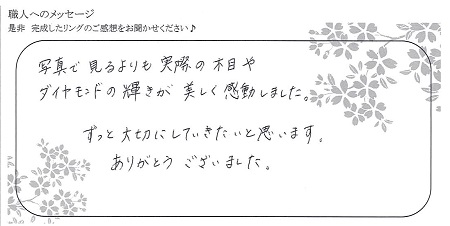 職人へのメッセージ
是非 完成したリングのご感想をお聞かせください♪
写真で見るよりも実際の木目や
ダイヤモンドの輝きが美しく感動しました。
ずっと大切にしていきたいと思います。
ありがとうございました。